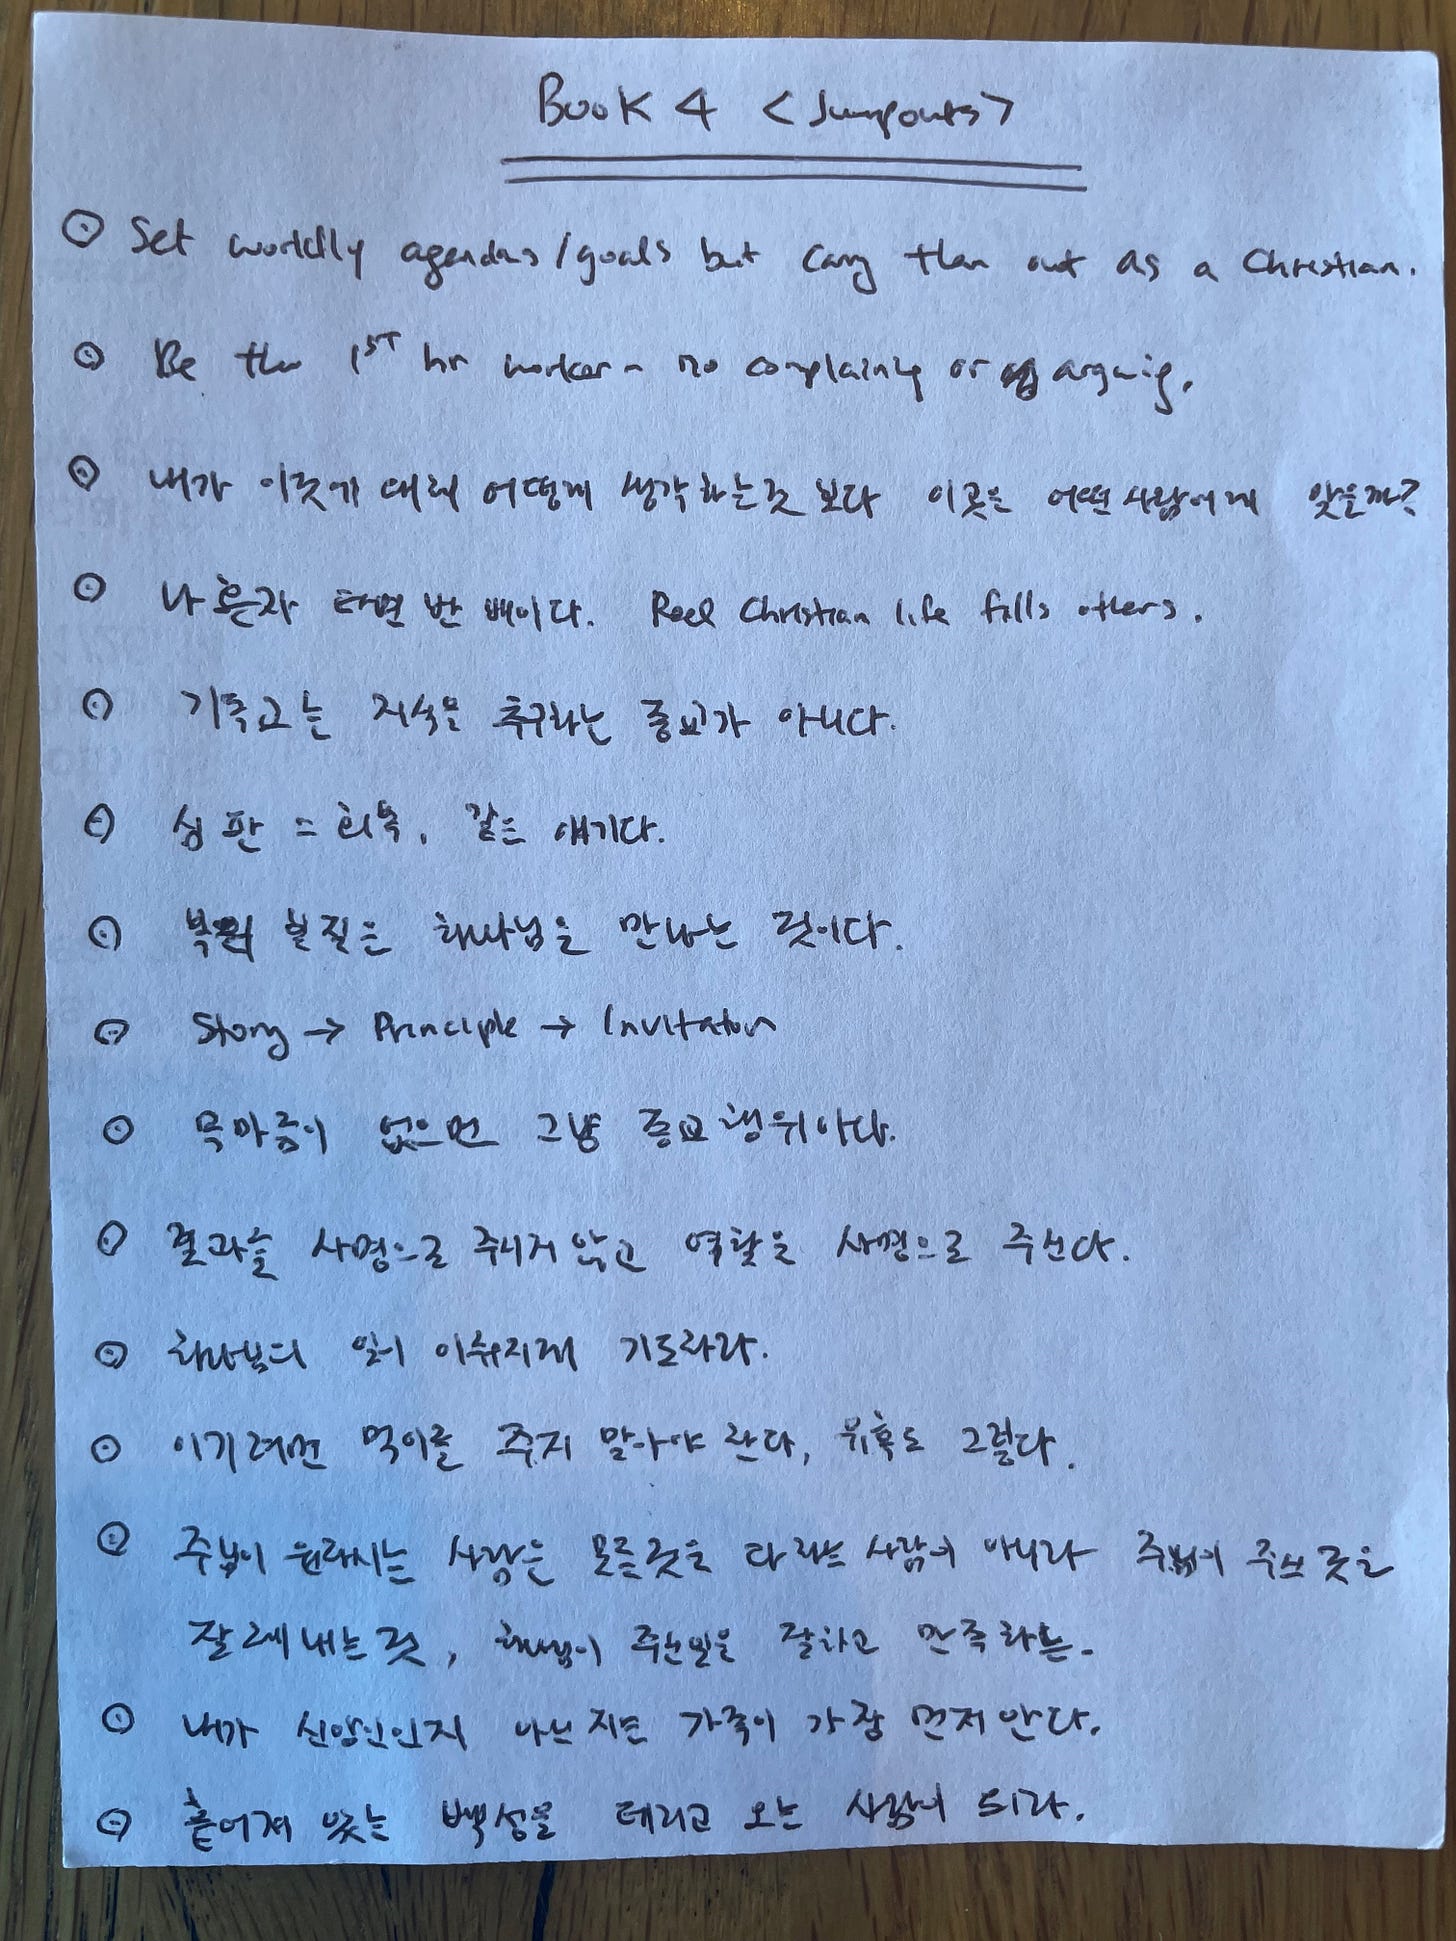 BOOK 4 <Jumpouts>
Set worldly agendas/goals but carry them out as a Christian.
Be the 1ST hr worker - no complaining or arguing.
내가 이곳에 대해 어떻게 생각하는것 보다 이곳은 어떤사람에게 맞을까?
나 혼자 타면 반 배이다. Real Christian life fills others.
기독교는 지식을 추구하는 종교가 아니다.
심판 = 회복, 같은 얘기다.
복의 본질은 하나님을 만나는 것이다.
Story → Principle → Invitation
목마름이 없으면 그냥 종교행위이다.
결과를 사명으로 주시지 않고 역할을 사명으로 주신다.
하나님의 일이 이뤄지게 기도하라.
이기려면 먹이를 주지 말아야 한다, 유혹도 그렇다.
주님이 원하시는 사람은 모든것을 다 하는 사람이 아니라 주님이 주신 것을
잘 해내는것, 하나님이 주는일을 잘하고 만족하는.
내가 신앙인인지 아닌지는 가족이 가장 먼저 안다.
흩어져 있는 백성을 데리고 오는 사람이 되라.